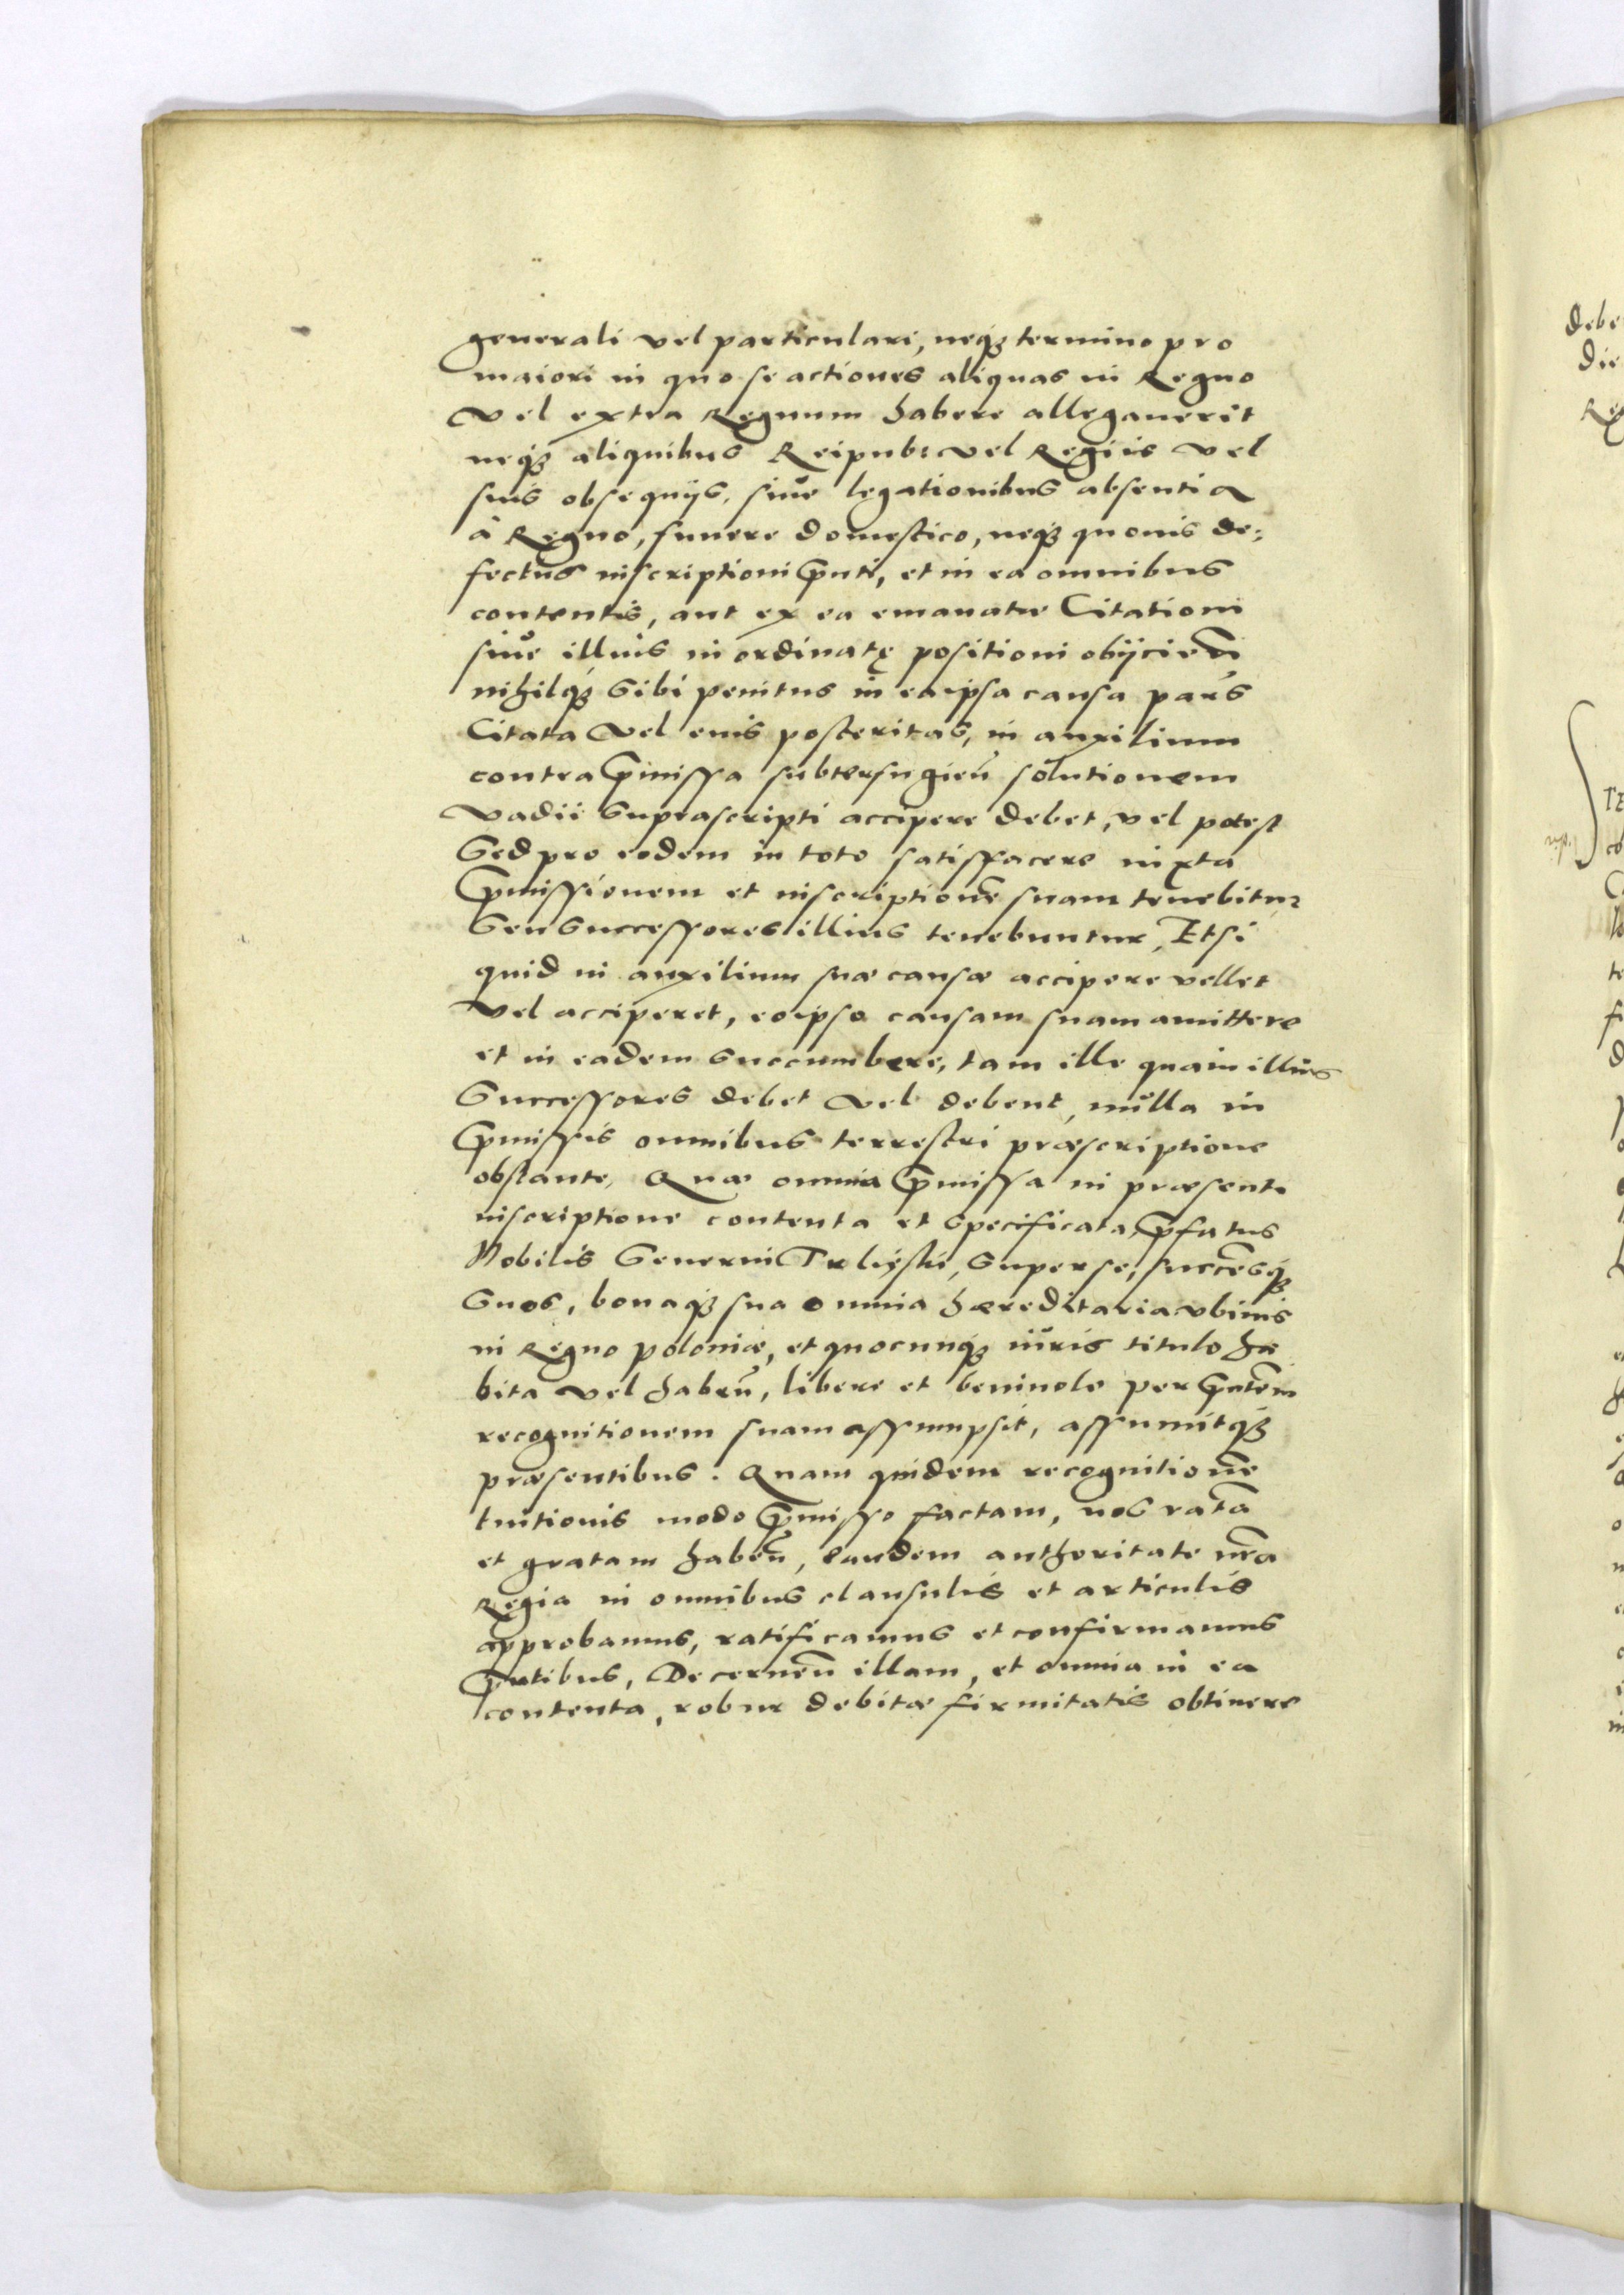 generali vel particulari, neqꝫ termino pro
maiori in quo se actiones aliquas in Regno
vel extra Regnum habere allegauerit
neqꝫ aliquibus Reipub: vel Regiis vel
suis obsequijs, siue legationibus absentia
à Regno, funere domestico, neqꝫ quouis de:
fectus inscriptioni p̃nti, et in ea omnibus
contentis, aut ex ea emanatæ Citationi
siue illius in ordinatę positioni obijcien̄
nihilqꝫ sibi penitus in ea ipsa causa pars
Citata vel eius posteritas, in auxilium
contra p̃missa subterfugien̄ solutionem
vadii suprascripti accipere debet, vel potest
Sed pro eodem in toto satisfacere iuxta
p̃missionem et inscriptionē suam tenebitur
Seu Successores illius tenebuntur, Et si
quid in auxilium suæ causæ accipere vellet
vel acciperet, eo ipso causam suam amittere
et in eadem succumbere, tam ille quam illius
Successores debet vel debent, nulla in
p̃missis omnibus terrestri præscriptione
obstante, Quæ omnia p̃missa in præsenti
inscriptione contenta et specificata, p̃fatus
Nobilis Generini super se, succēsqꝫ
suos, bonaqꝫ sua omnia hæreditaria vbiuis
in Regno poloniæ, et quocunqꝫ iuris titulo ha
bita vel haben̄, libere et beniuole per p̃ntem
recognitionem suam assumpsit, assumitqꝫ
præsentibus. Quam quidem recognitionē
tuitionis modo p̃misso factam, nos ratā
et gratam haben̄, eandem authoritate nr̄a
Regia in omnibus clausulis et articulis
approbamus, ratificamus et confirmamus
p̃ntibus, Decernen̄ illam, et omnia in ea
contenta, robur debitæ firmitatis obtinere